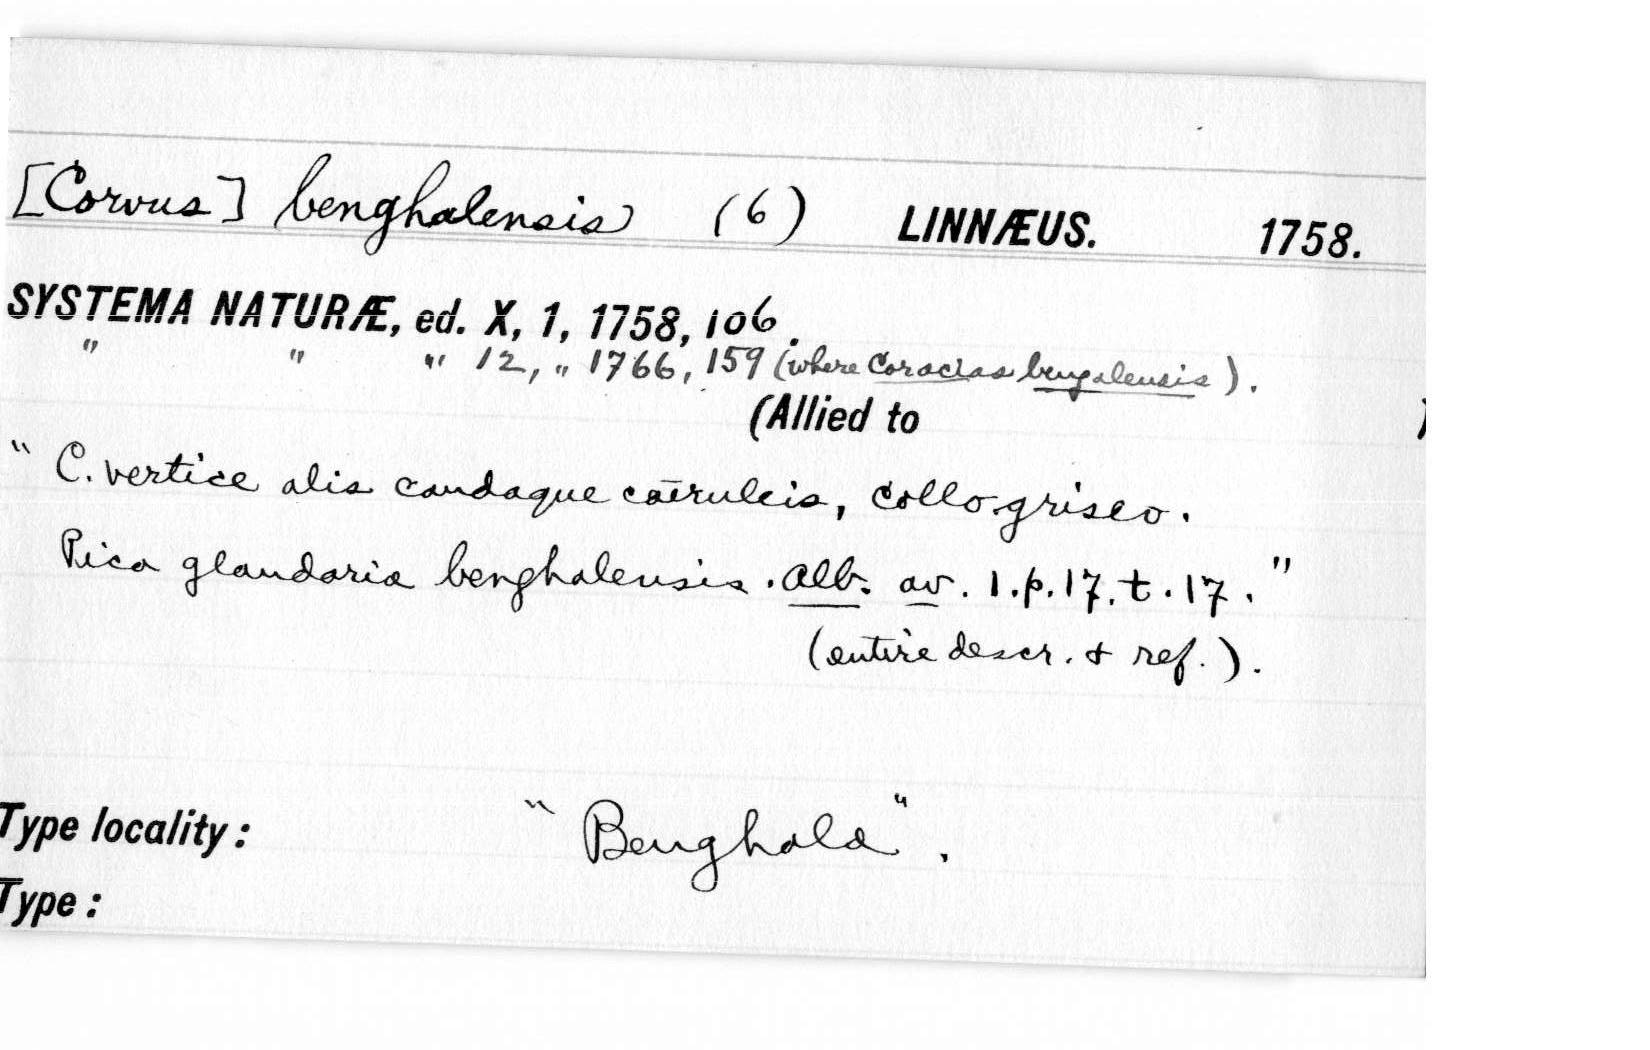 [Corvus] benghalensis (6) LINNÆUS. 1758.
SYSTEMA NATURÆ, ed. X, 1, 1758, 106.
" " " 12, " 1766, 159 (where Coracias bengalensis).
(Allied to )
"C. vertice alis caudaque cœruleis, collo griseo.
Pica glandaria benghalensis. Alb. av. 1. p. 17. t. 17."
(entire descr. & ref.).
Type locality: "Benghala".
Type: